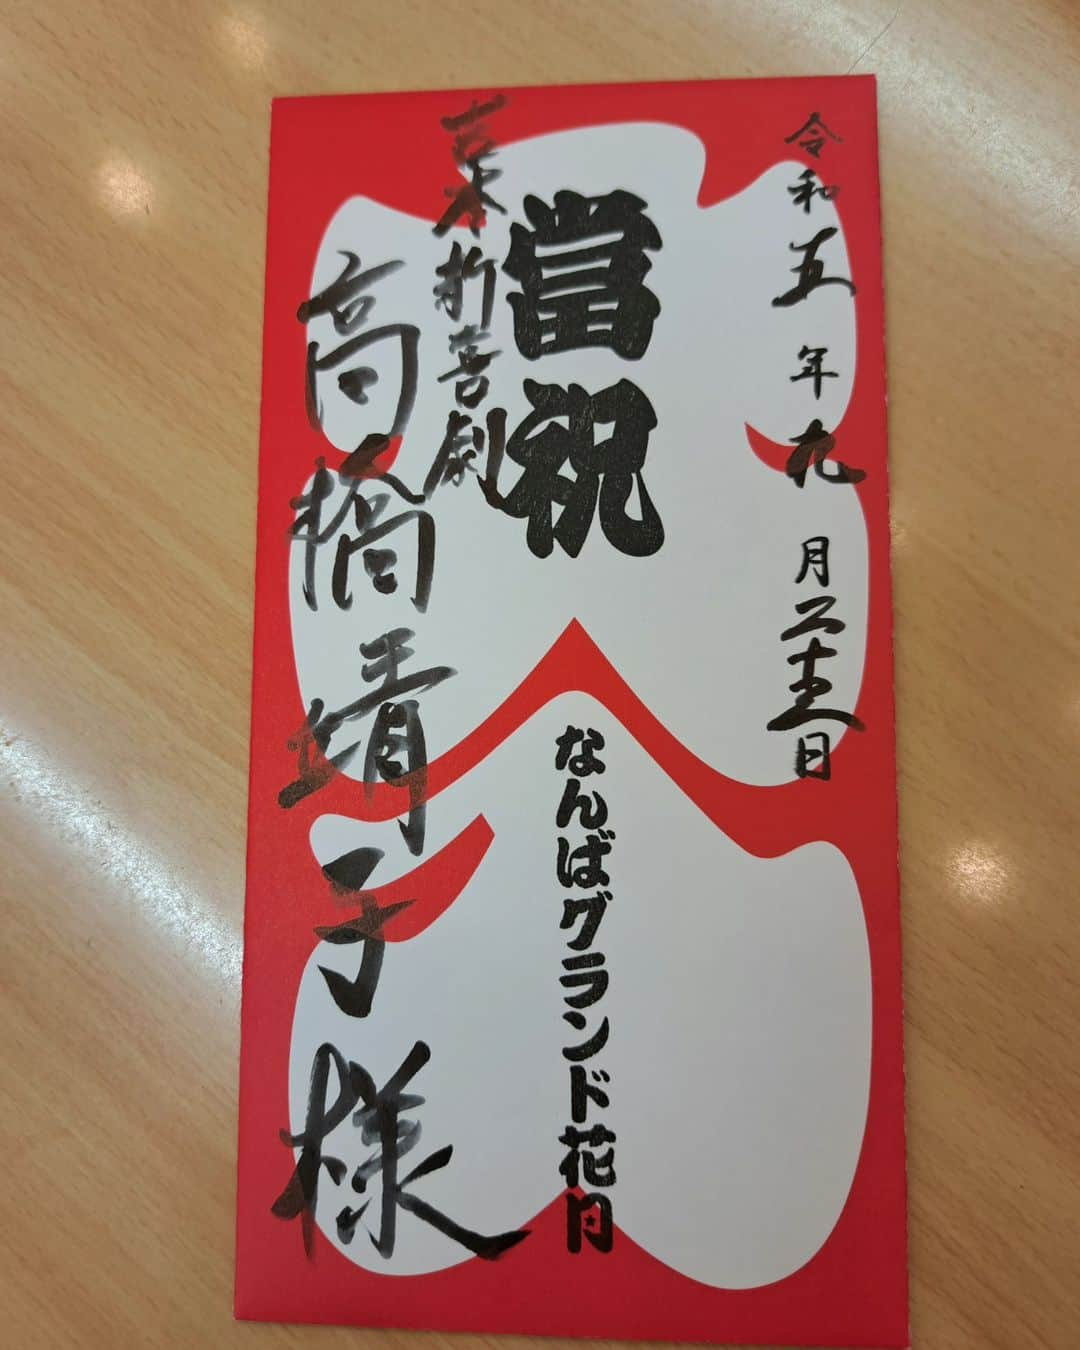 令和五年九月二十五日
當祝
なんばグランド花月
吉本新喜劇
高橋靖子様